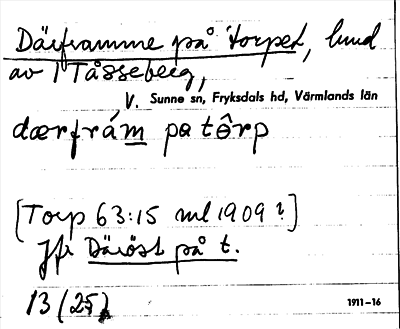 Därframme på torpet, lund
av 1 Tåsseberg,
V. Sunne sn, Fryksdals hd, Värmlands län
dærfrám pα tôrp
[Torp 63:15 ml 1909?]
Jfr Däröst på t.
13 (25)
1911-16